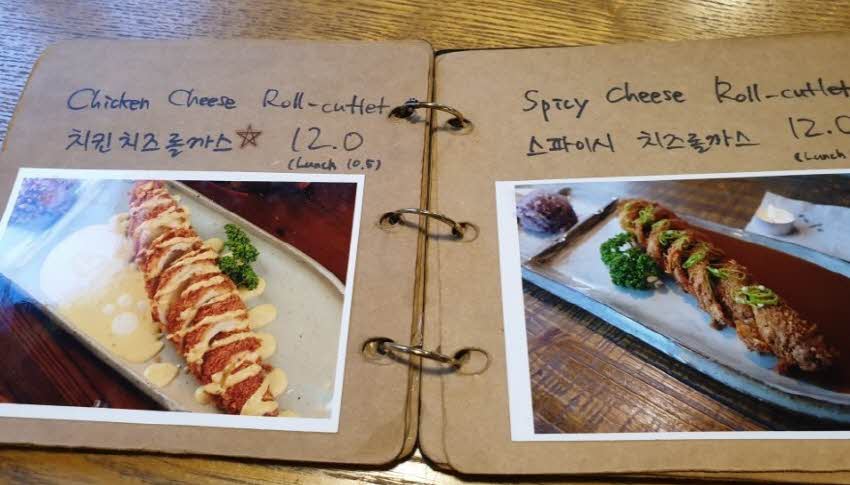 Chicken Cheese Roll-cutlet
치킨 치즈롤까스☆ 12.0
(Lunch 10.5)
Spicy Cheese Roll-cutlet
스파이시 치즈롤까스 12.0
(Lunch